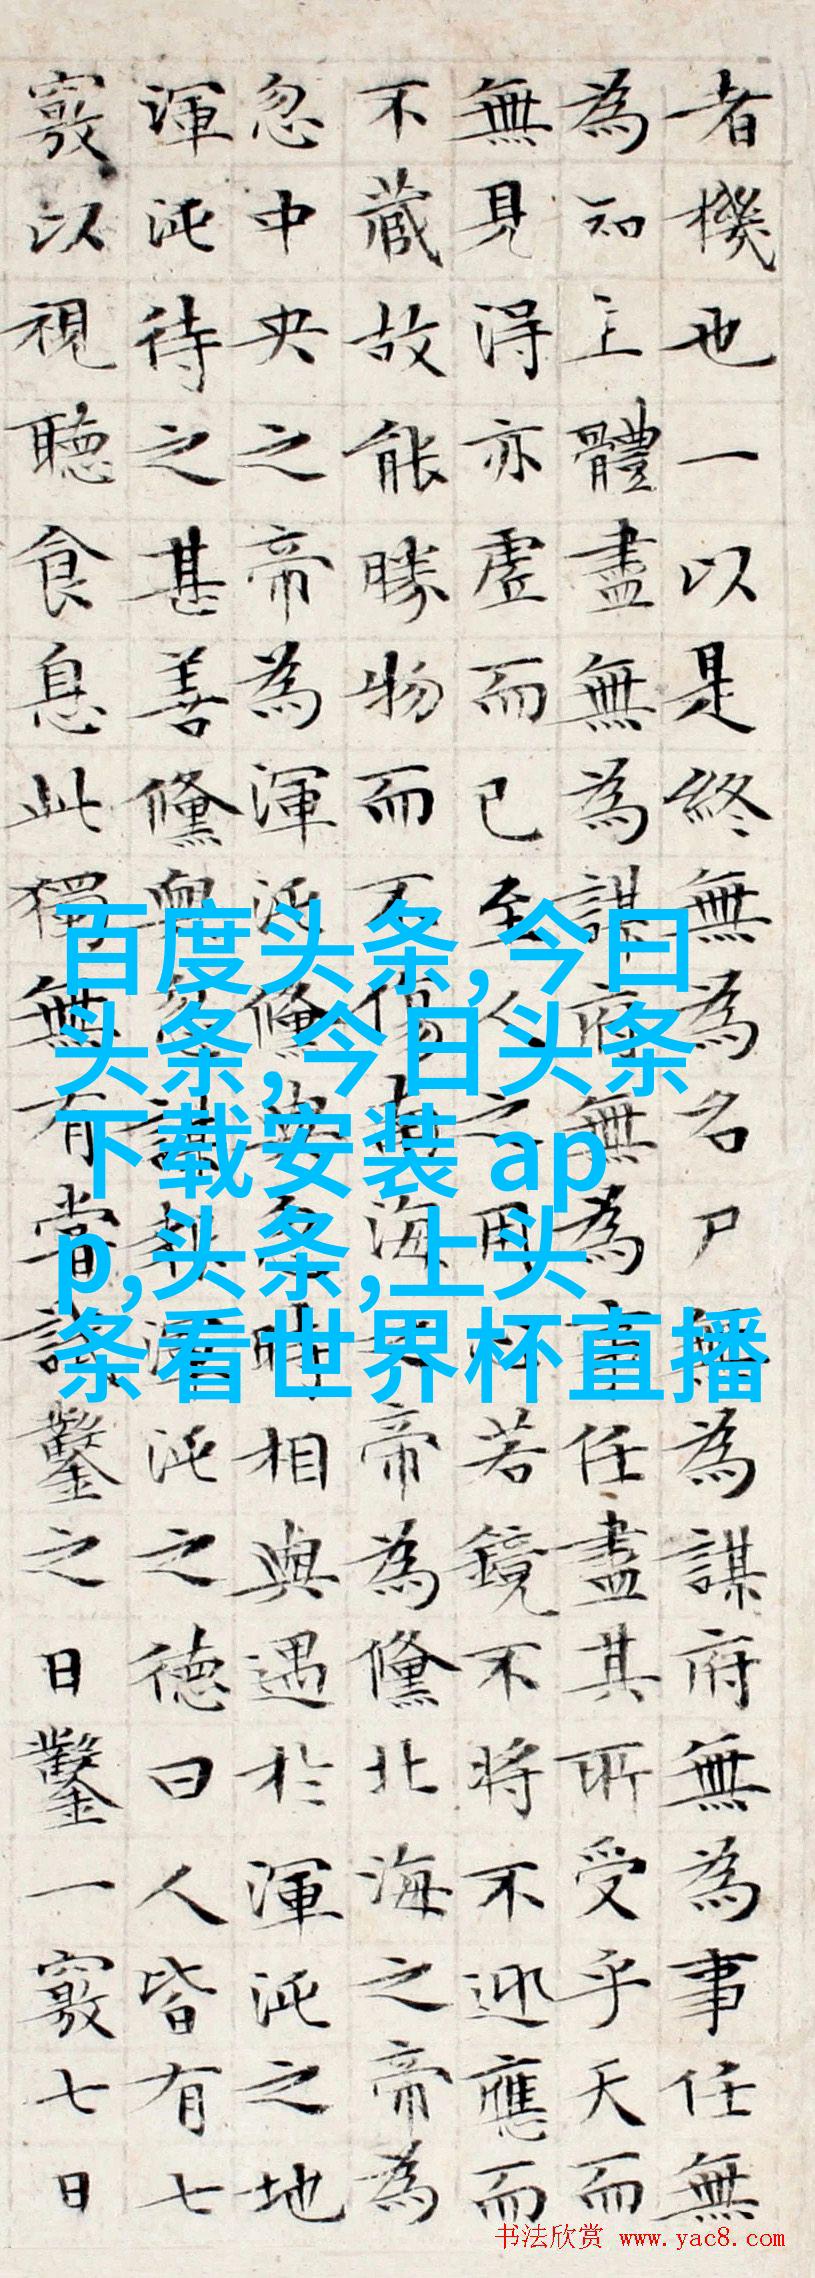 者機也一以是終無為名尸無為謀府無為事任無
為知主體盡無為謀府無為事任盡其所受乎天而
無見淂亦虛而已至人之用心若鏡不將不迎應而
不藏故能勝物而不傷南海之帝為儵北海之帝為
忽中央之帝為渾沌儵與忽時相與遇於渾沌之地
渾沌待之甚善儵與忽謀報渾沌之德曰人皆有七
竅以視聽食息此獨無有嘗試鑿之日鑿一竅七日
百度头条,今曰
头条,今日头条
下载安装 ap
p,头条,上头
条看世界杯直播
书法欣赏 www.yac8.com